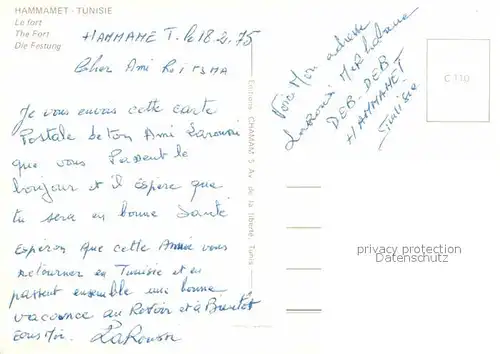 HAMMAMET - TUNISIE
Le fort
The Fort
Die Festung
HAMMAMET. le 18.2.75
Cher Ami
Je vous envois cette carte
Postale de ton Ami Laroussi
que vous Passent le
bonjour et il Espère que
tu sera en bonne Santé
Espèron que cette Année vous
retourner en Tunisie et en
passent ensemble une bonne
vacance au Revoir et à Bientot
LaRoussi
Editions CHAMAM 5 Av. de la liberté Tunis
Voici Mon adresse
Laroussi
DEB-DEB
HAMMAMET
Tunisie
C 110
privacy protection
Datenschutz